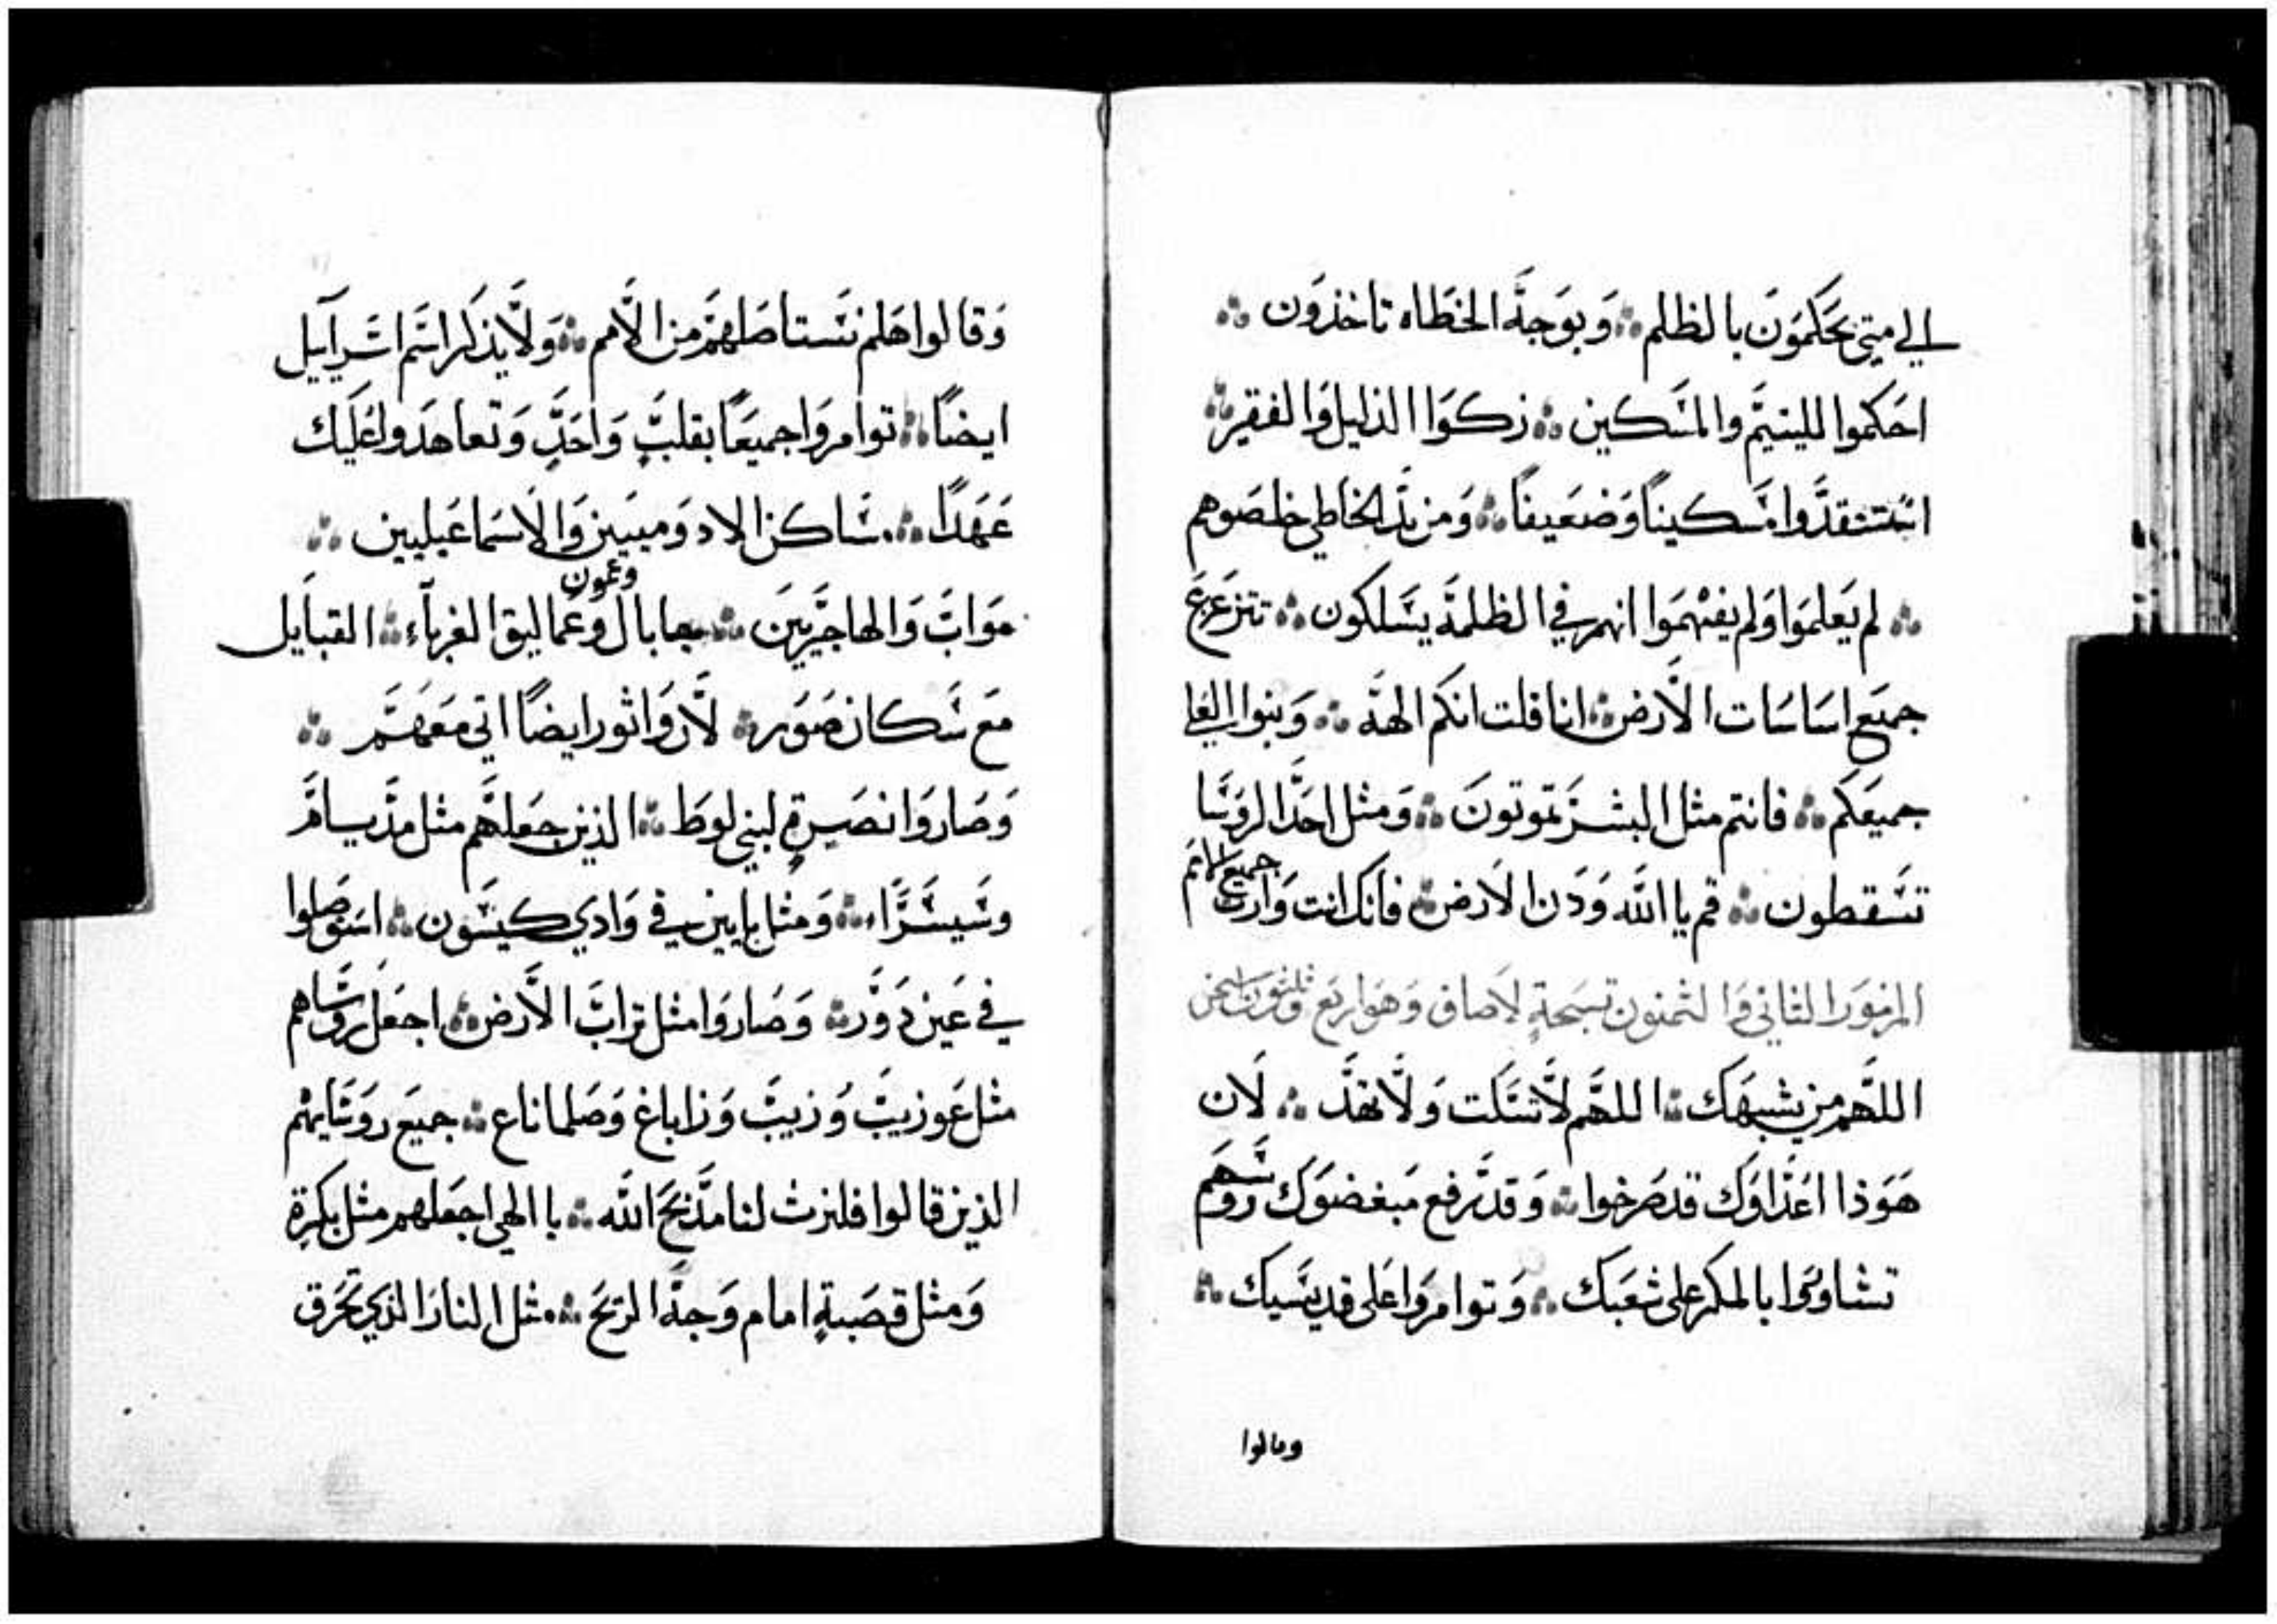 الي متي تحكمون بالظلم ؞ وبوجه الخطاه تاخذون ؞
احكموا لليتيم والمسكين ؞ زكوا الذليل والفقير ؞
استنقدوا مسكيناً وضعيفاً ؞ ومن يد الخاطي خلصوهم
؞ لم يعلموا ولم يفهموا انهم في الظلمة يسلكون ؞ تتزعزع
جميع اساسات الارض ؞ انا قلت انكم الهة ؞ وبنوا العلي
جميعكم ؞ فانتم مثل البشر تموتون ؞ ومثل احد الروسا
تسقطون ؞ قم يا الله ودن الارض ؞ فانك انت وارث جميع الامم
المزمور الثاني والثمنون تسبحة لاصاف وهو اربع وثلثون
اللهم من يشبهك ؞ اللهم لا تسكت ولا تهد ؞ لان
هوذا اعداوك قد صرخوا ؞ وقد رفع مبغضوك روسهم
تشاوروا بالمكر على شعبك ؞ وتوامروا على قديسيك ؞
وقالوا
وقالوا هلم نستاصلهم من الامم ؞ ولا يذكر اسم اسراييل
ايضاً ؞ توامروا جميعاً بقلبٍ واحدٍ وتعاهدوا عليك
عهداً ؞ مساكن الادوميين والاسماعيليين ؞
مواب والهاجريين ؞ جابال وعمون وعماليق الغرباء ؞ القبايل
مع سكان صور ؞ لان واثور ايضاً اتي معهم ؞
وصاروا نصرة لبني لوط ؞ الذين جعلهم مثل مديام
وسيسرا ؞ ومثل يابين في وادي كيسون ؞ استوصلوا
في عين دور ؞ وصاروا مثل تراب الارض ؞ اجعل روساهم
مثل عوزيب وزيب وزاباغ وصلماناع ؞ جميع روسايهم
الذين قالوا فلنرث لنا مذبح الله ؞ يا الهي اجعلهم مثل بكرة
ومثل قصبة امام وجه الريح ؞ مثل النار الذي تحرق